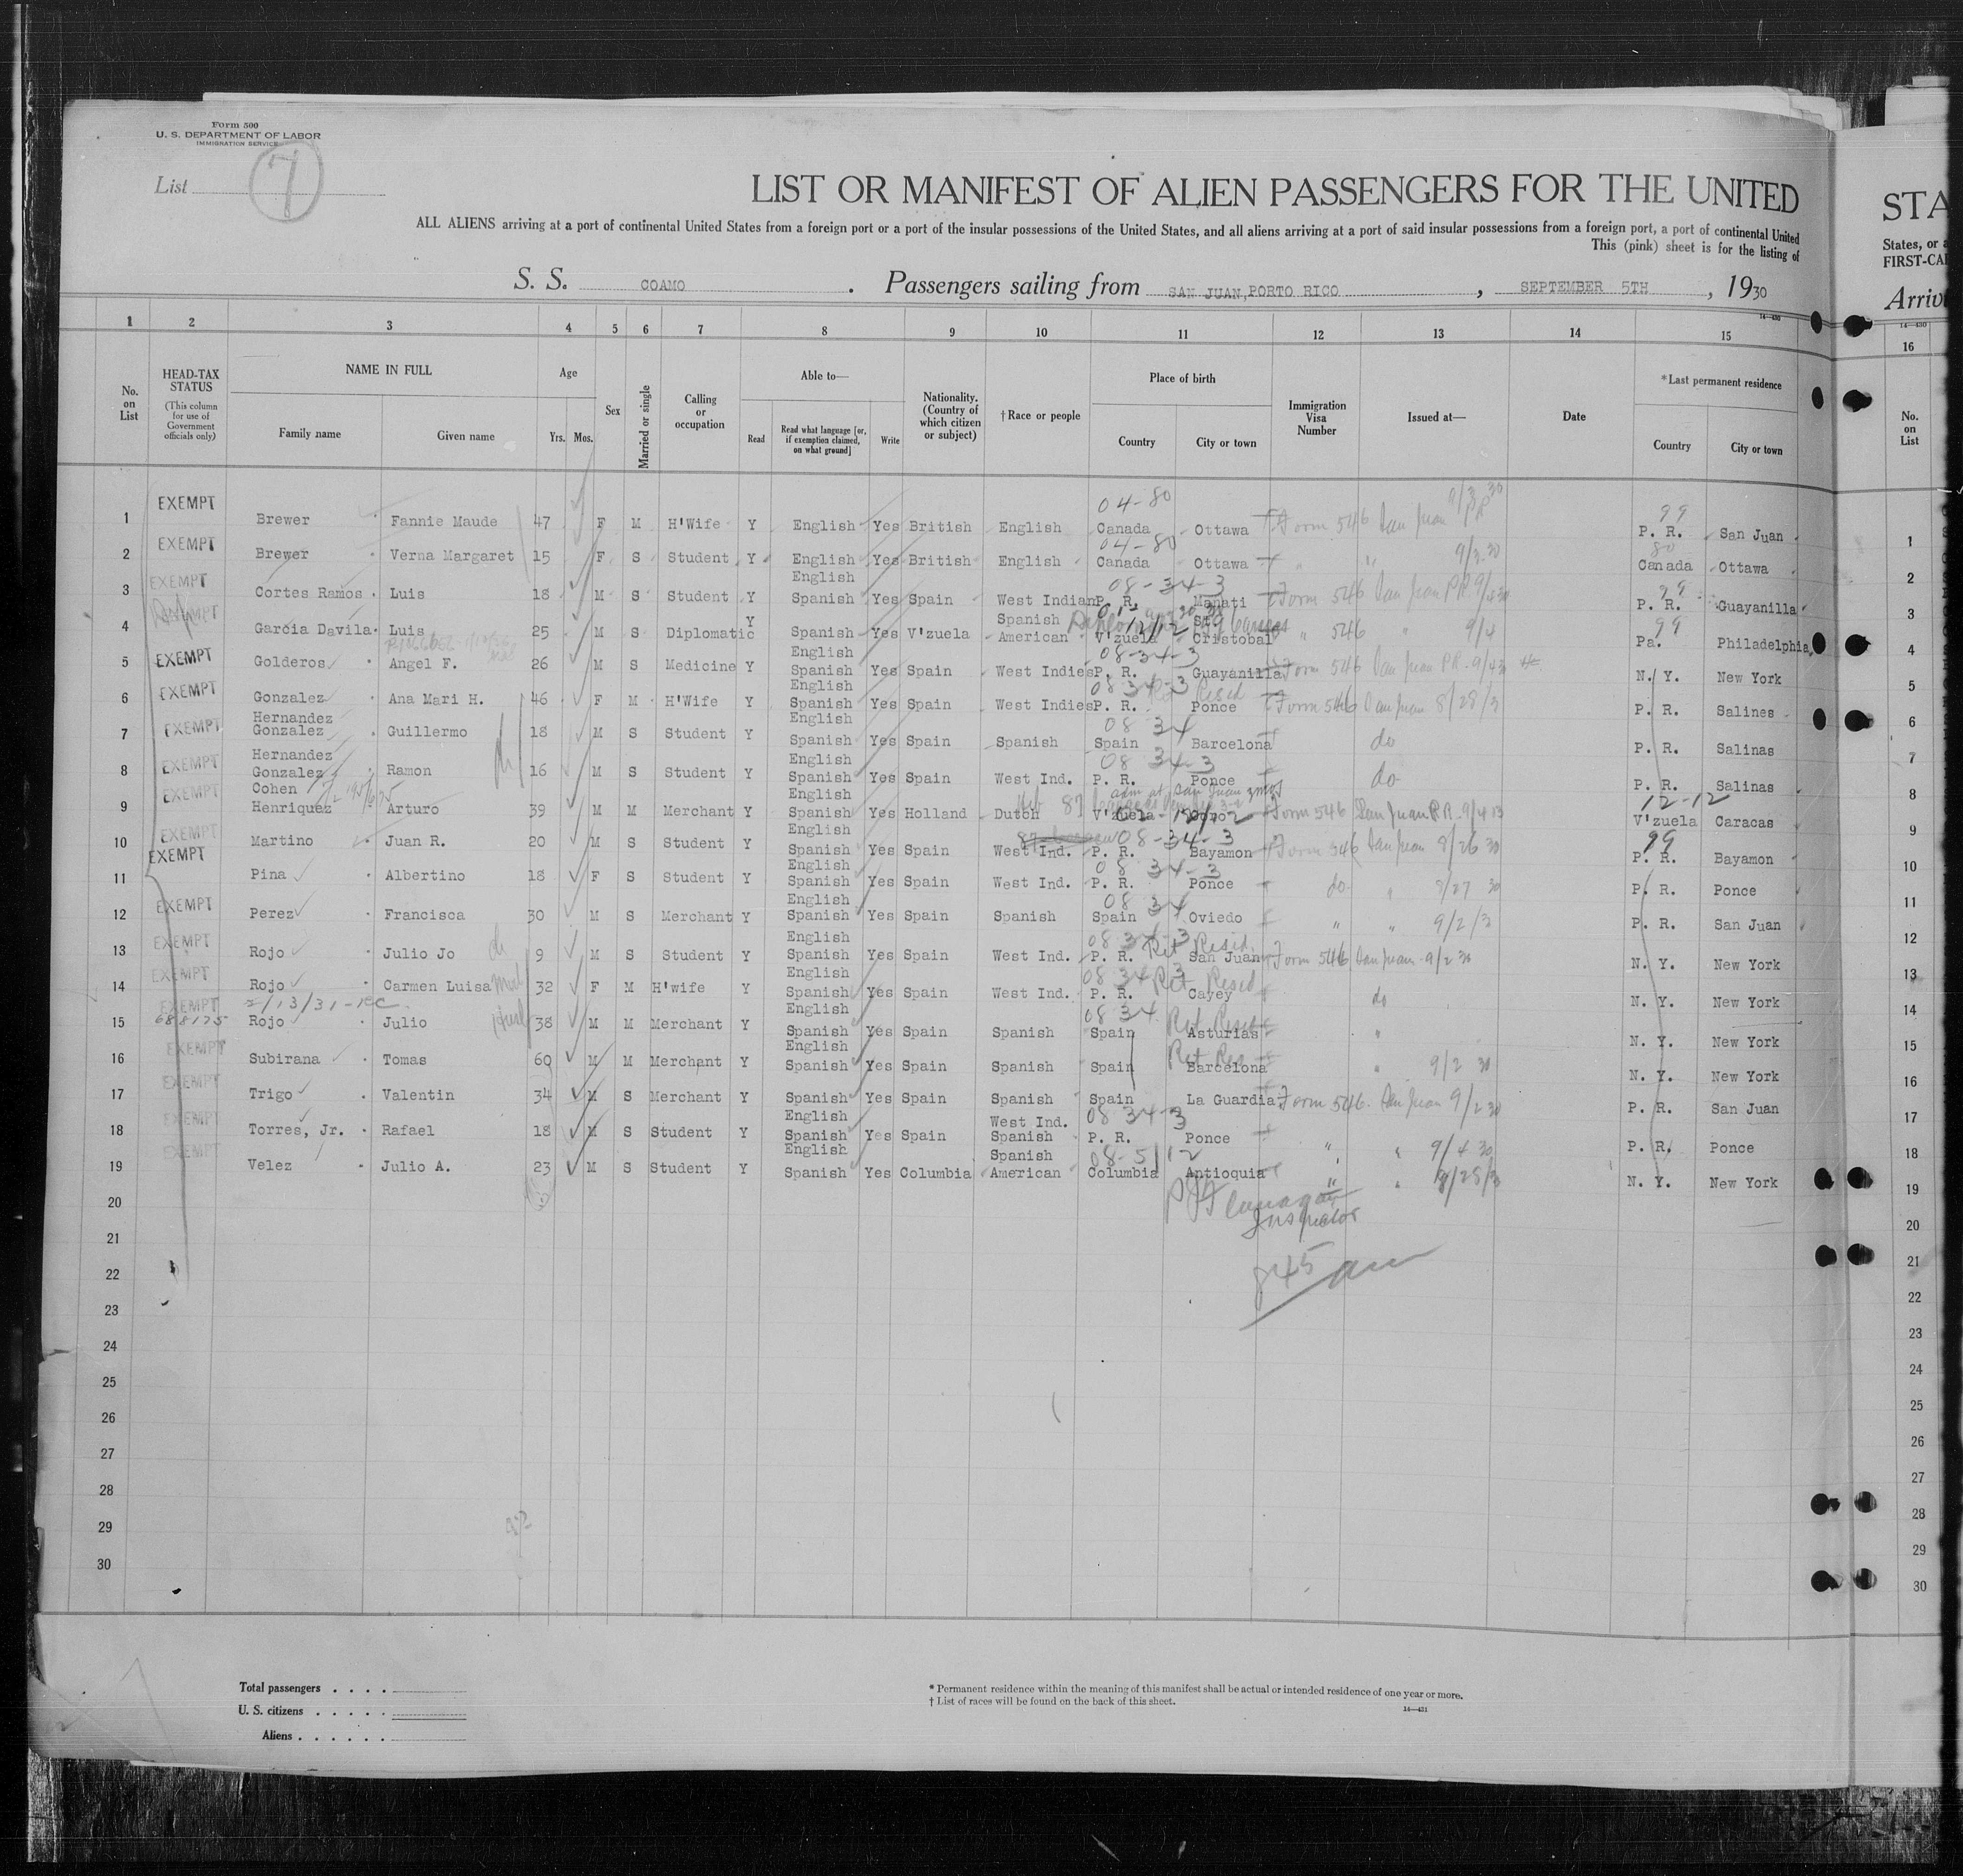 Form 500
U. S. DEPARTMENT OF LABOR
IMMIGRATION SERVICE
List 7
LIST OR MANIFEST OF ALIEN PASSENGERS FOR THE UNITED
STA
ALL ALIENS arriving at a port of continental United States from a foreign port or a port of the insular possessions of the United States, and all aliens arriving at a port of said insular possessions from a foreign port, a port of continental United
States, or a
This (pink) sheet is for the listing of
FIRST-CA
S. S. COAMO. Passengers sailing from SAN JUAN, PORTO RICO, SEPTEMBER 5TH, 1930
Arriv
1 2 3 4 5 6 7 8 9 10 11 12 13 14 15 16
14—430
14—430
No. on List
HEAD-TAX STATUS (This column for use of Government officials only)
NAME IN FULL
Family name Given name
Age
Yrs. Mos.
Sex
Married or single
Calling or occupation
Able to—
Read
Read what language [or, if exemption claimed, on what ground]
Write
Nationality. (Country of which citizen or subject)
†Race or people
Place of birth
Country City or town
Immigration Visa Number
Issued at—
Date
*Last permanent residence
Country City or town
No. on List
1 EXEMPT Brewer Fannie Maude 47 F M H'Wife Y English Yes British English 04-80 Canada Ottawa Form 546 San Juan PR 9/3 30 99 P. R. San Juan 1
2 EXEMPT Brewer Verna Margaret 15 F S Student Y English Yes British English 04-80 Canada Ottawa " " 9/3 30 80 Canada Ottawa 2
3 EXEMPT Cortes Ramos Luis 18 M S Student Y English Spanish Yes Spain West Indian 08-34-3 P. R. Manati Form 546 San Juan PR 99 P. R. Guayanilla 3
4 EXEMPT Garcia Davila Luis 25 M S Diplomatic Y Spanish Yes V'zuela Spanish American V'zuela St. Cristobal " 546 " 9/4 99 Pa. Philadelphia 4
5 EXEMPT Golderos Angel F. 26 M S Medicine Y English Spanish Yes Spain West Indies 08-34-3 P. R. Guayanilla Form 546 San Juan PR N. Y. New York 5
6 EXEMPT Gonzalez Ana Mari H. 46 F M H'Wife Y English Spanish Yes Spain West Indies 08 34-3 P. R. Ponce Form 546 San Juan 8/28/3 P. R. Salines 6
7 EXEMPT Hernandez Gonzalez Guillermo 18 M S Student Y English Spanish Yes Spain Spanish 08 34 Spain Barcelona do P. R. Salinas 7
8 EXEMPT Hernandez Gonzalez Ramon 16 M S Student Y English Spanish Yes Spain West Ind. 08 34-3 P. R. Ponce do P. R. Salinas 8
9 EXEMPT Cohen Henriquez Arturo 39 M M Merchant Y English Spanish Yes Holland Dutch V'zuela Form 546 San Juan P.R. 12-12 V'zuela Caracas 9
10 EXEMPT Martino Juan R. 20 M S Student Y English Spanish Yes Spain West Ind. 08-34-3 P. R. Bayamon Form 546 San Juan 8/26 30 99 P. R. Bayamon 10
11 EXEMPT Pina Albertino 18 F S Student Y English Spanish Yes Spain West Ind. 08 34-3 P. R. Ponce do " 8/27 30 P. R. Ponce 11
12 EXEMPT Perez Francisca 30 M S Merchant Y English Spanish Yes Spain Spanish 08 34 Spain Oviedo " " 9/2/3 P. R. San Juan 12
13 EXEMPT Rojo Julio Jo 9 M S Student Y English Spanish Yes Spain West Ind. 08 34-3 Ret Resid. P. R. San Juan Form 546 San Juan 9/2 30 N. Y. New York 13
14 EXEMPT Rojo Carmen Luisa 32 F M H'wife Y English Spanish Yes Spain West Ind. 08 34 3 Ret Resid P. R. Cayey do N. Y. New York 14
2/13/31
15 EXEMPT 688175 Rojo Julio 38 M M Merchant Y English Spanish Yes Spain Spanish 08 34 Ret Resid Spain Asturias " N. Y. New York 15
16 EXEMPT Subirana Tomas 60 M M Merchant Y English Spanish Yes Spain Spanish Ret Res Spain Barcelona " 9/2 30 N. Y. New York 16
17 EXEMPT Trigo Valentin 34 M S Merchant Y Spanish Yes Spain Spanish Spain La Guardia Form 546 San Juan 9/2 30 P. R. San Juan 17
18 EXEMPT Torres, Jr. Rafael 18 M S Student Y English Spanish Yes Spain West Ind. Spanish 08 34-3 P. R. Ponce " " 9/4 30 P. R. Ponce 18
19 EXEMPT Velez Julio A. 23 M S Student Y English Spanish Yes Columbia Spanish American Columbia Antioquia " " 8/28/3 N. Y. New York 19
20 Inspector 20
21 21
22 845 am 22
23 23
24 24
25 25
26 26
27 27
28 28
29 29
30 30
Total passengers
U. S. citizens
Aliens
* Permanent residence within the meaning of this manifest shall be actual or intended residence of one year or more.
† List of races will be found on the back of this sheet.
14—431